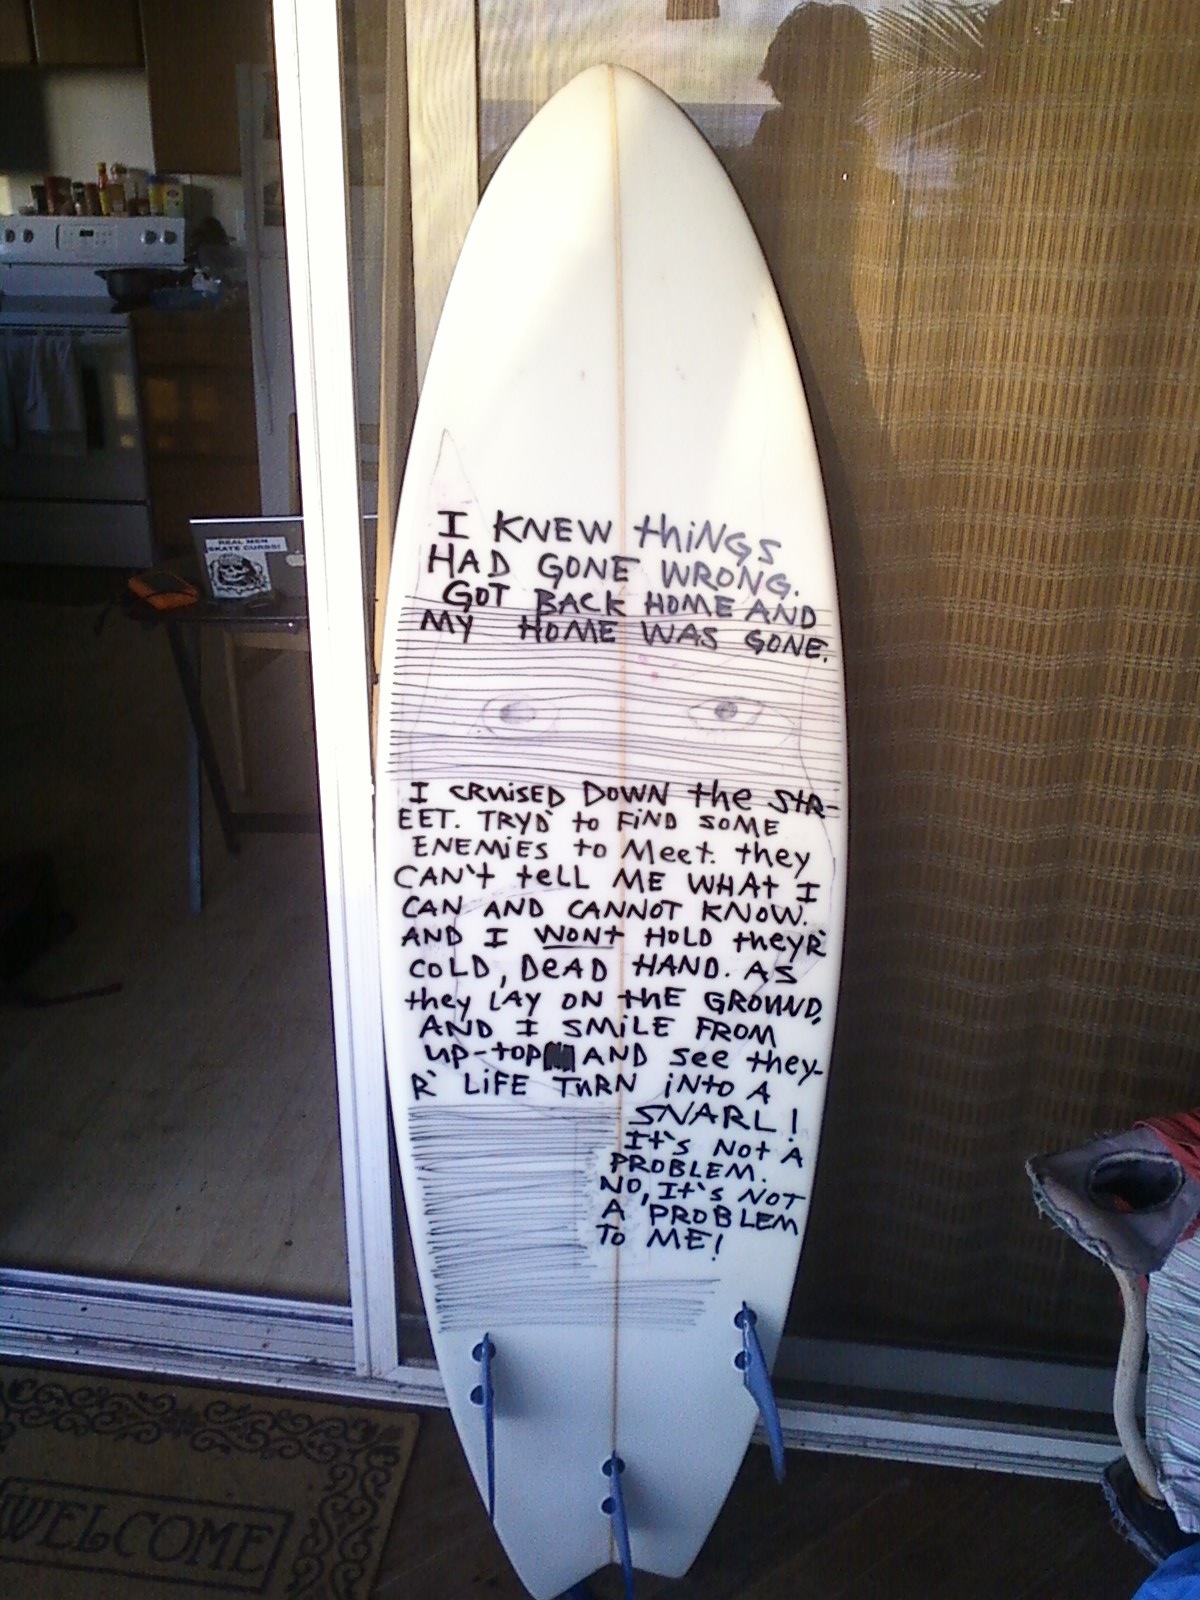 REAL MEN
SKATE CURBS!
I KNEW thiNGS
HAD GONE WRONG.
GOT BACK HOME AND
MY HOME WAS GONE.
I CRUISED DOWN the StR-
EET. TRYD' to FiND SOME
ENEMiES to Meet. they
CAN't teLL ME WHAt I
CAN AND CANNOT KNOW.
AND I WONt HOLD theyR'
COLD, DeAD HAND. AS
they LAY ON thE GROUND,
AND I SMiLE FROM
UP-tOP AND see they-
R' LiFE TURN iNtO A
SNARL!
It's Not A
PROBLEM.
NO, It's NOT
A PROBLEM
TO ME!
WELCOME